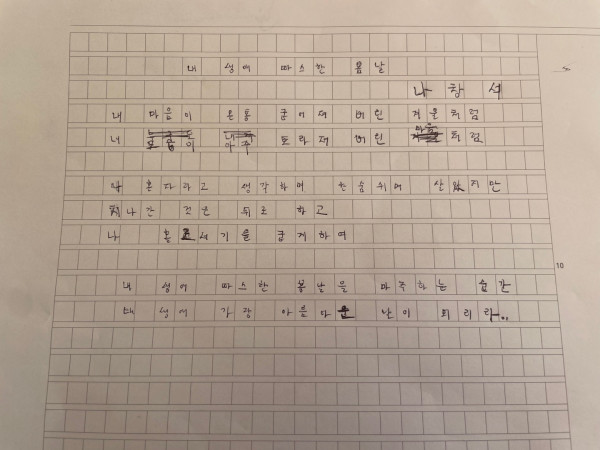 내 생에 따스한 봄날
나창석
내 마음이 온통 굳어져 버린 겨울처럼
너 모습이 아주 토라져 버린 마음처럼
나 혼자라고 생각하며 한숨쉬며 살았지만
지나간 것은 뒤로 하고
나 홀로서기를 굳게하여
내 생에 따스한 봄날을 마주하는 순간
내 생에 가장 아름다운 날이 되리라..
10